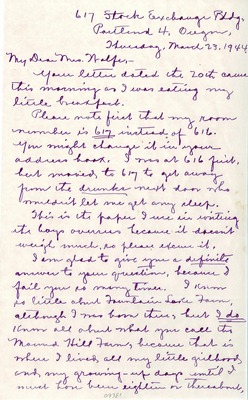 617 Stock Exchange Bldg.
Portland 4, Oregon,
Thursday, March 23, 1944
My Dear Mrs. Wolfe,-
Your letter dated the 20th came
this morning as I was eating my
little breakfast.
Please note first that my room
number is 617 instead of 616.
You might change it in your
address book. I was at 616 first,
but moved to 617 to get away
from the drunks next door who
wouldn't let me get any sleep.
This is the paper I use in writing
its boys overseas because it doesn't
weigh much, so please excuse it.
I am glad to give you a definite
answer to your question, because I
fail you so many times. I know
so little about Fountain Farm,
although I was born there, but I do
know all about what you call the
Mound Hill Farm, because that is
where I lived all my little girlhood
and my growing-up days until I
must have been eighteen or thereabout,